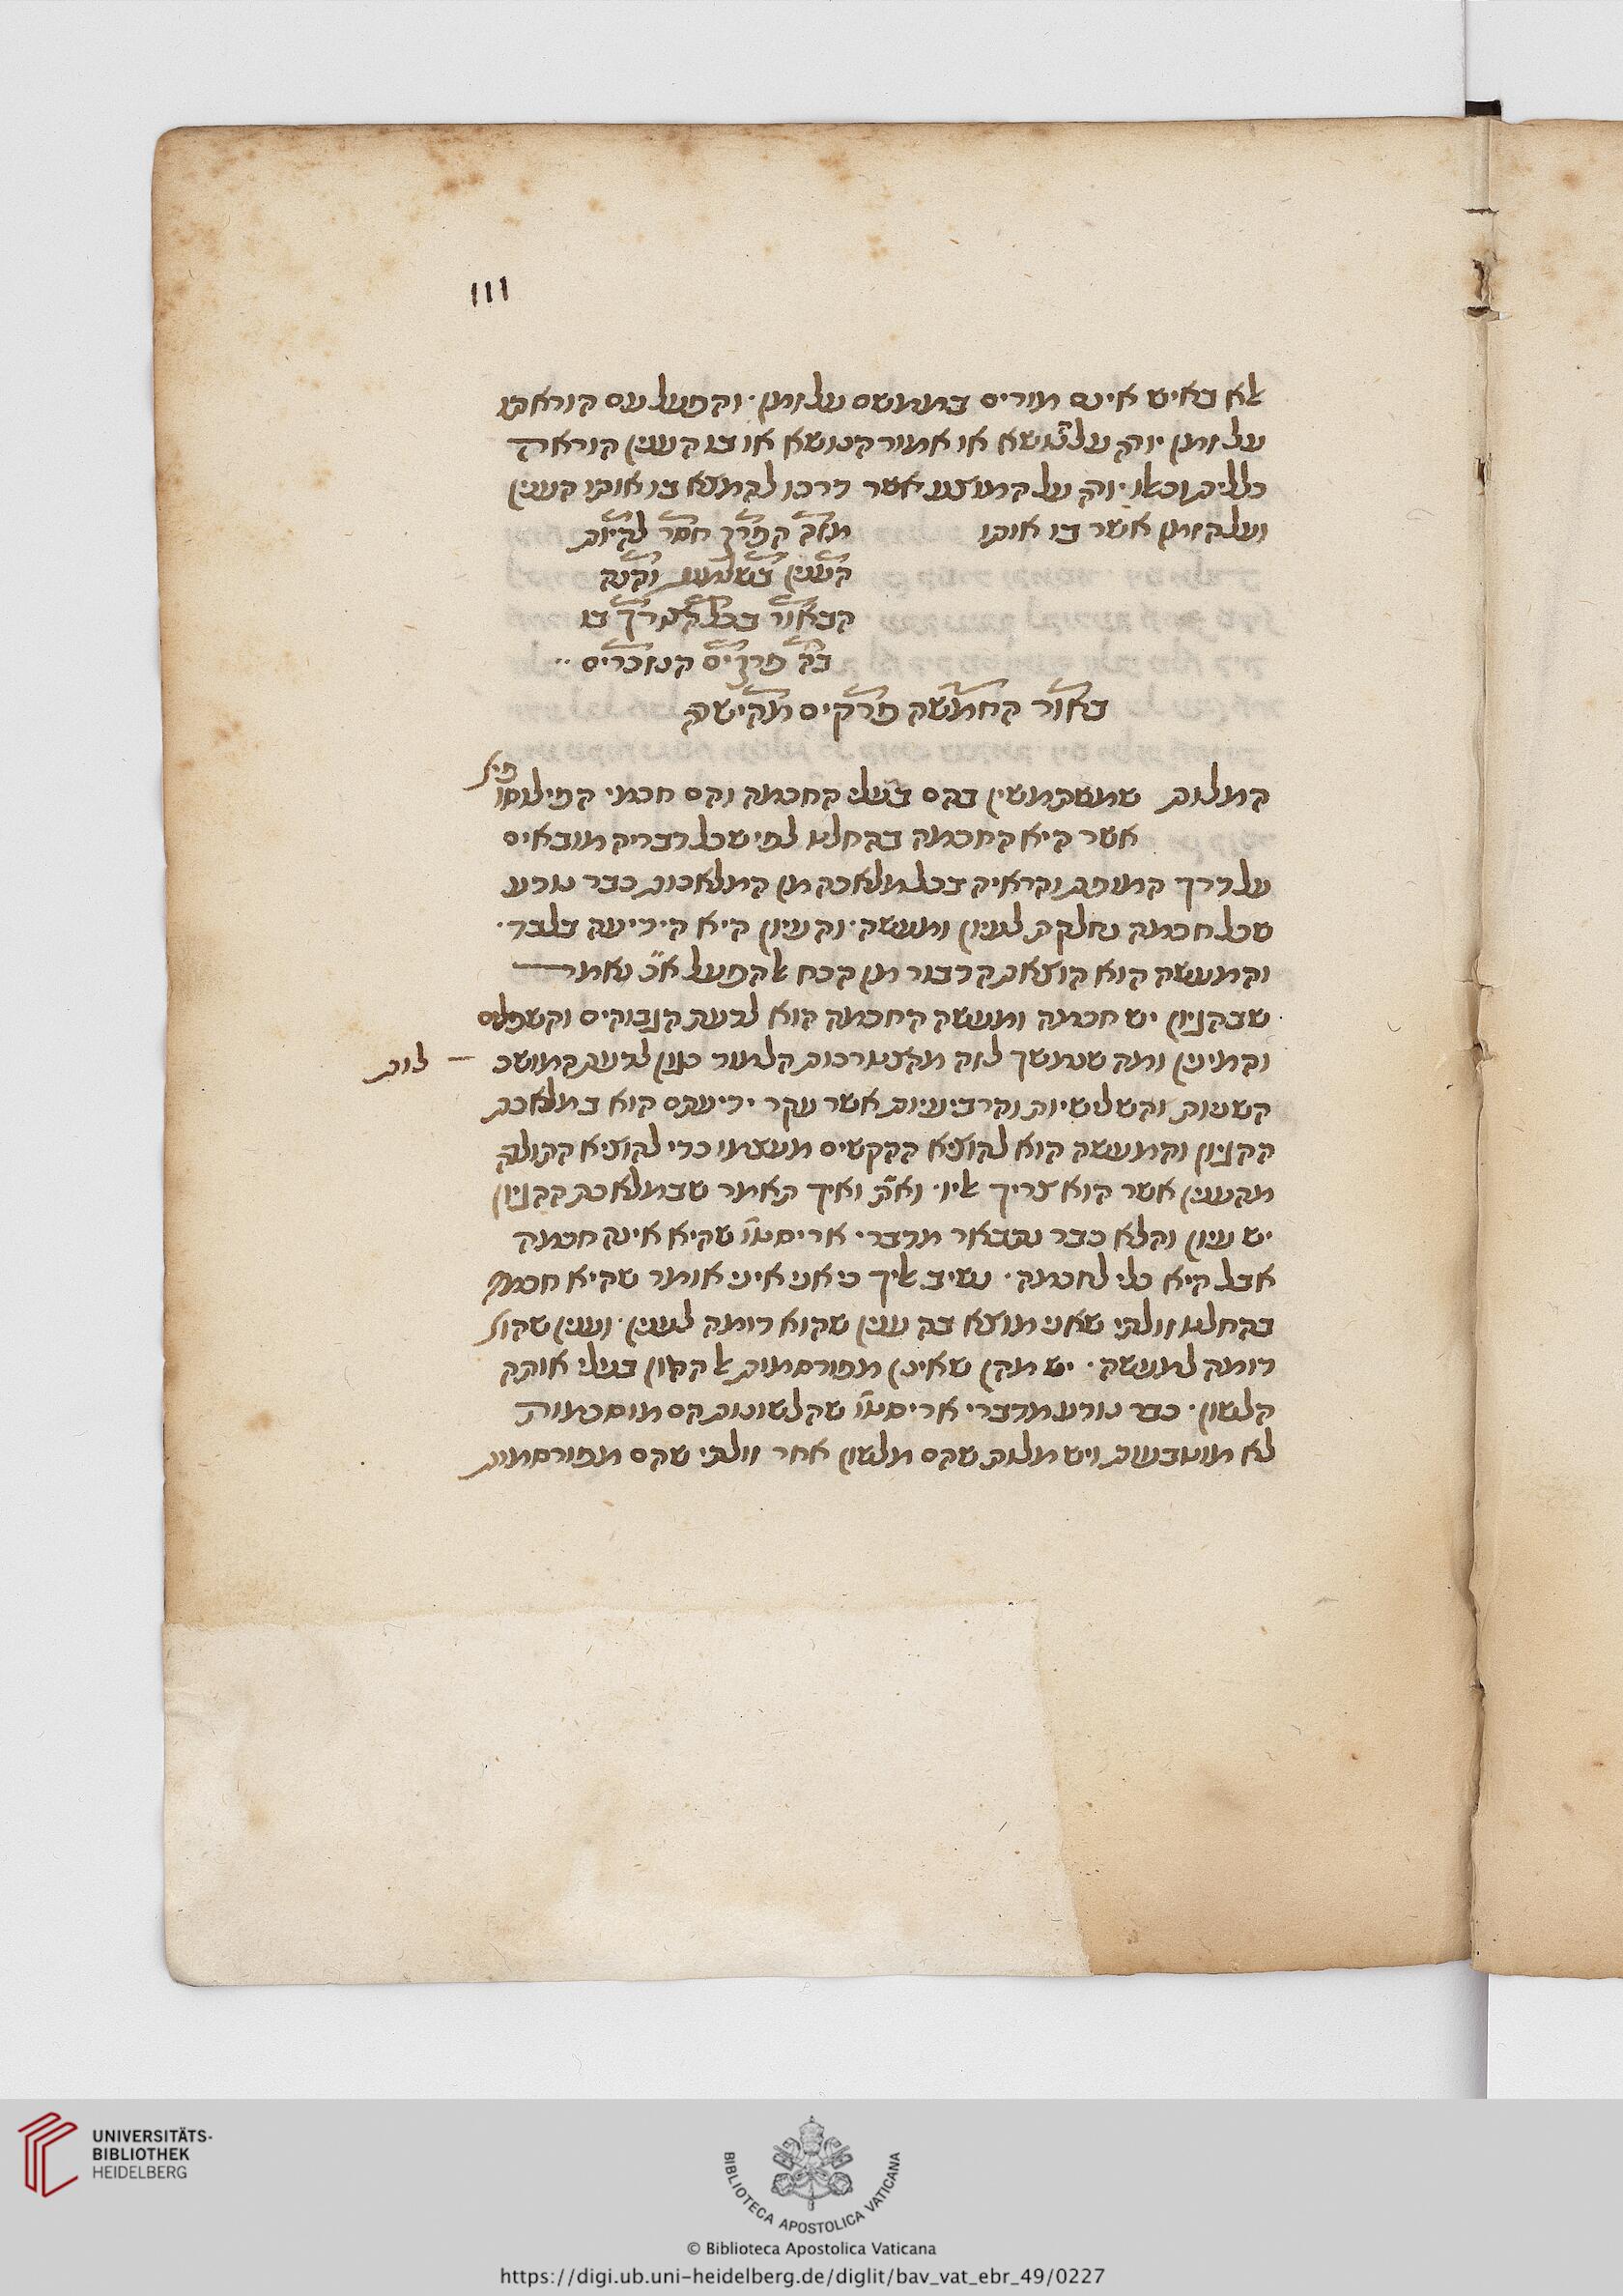 111
לא באיש אינם מורים בעצמם על זמן · והפעל עם הוראתו
על זמן יורה על הנושא או אמור הנושא או בו הענין הוראה
כללית וכאלו יורה על המוצע אשר דרכו להמצא בו אותו הענין
ועל הזמן אשר בו אותו
מזה הפרק חסר להיות
הענין
הבאור בכל הפרק בו
בה פרקים הנזכרים ··
באור החמשה פרקים מהקשה
המלות שמשתמשין בהם בעלי החכמה והם חכמי הפילוסו
פיא
אשר היא החכמה בהחלט לפי שכל דבריה מובאים
על דרך המופת והראיה בכל מלאכה מן המלאכות כבר נודע
שכל חכמה נחלקת לעיון ומעשה · והעיון היא הידיעה בלבד ·
והמעשה הוא הוצאת הדבור מן הכח אל הפועל א״כ נאמר
שבהגיון יש חכמה ומעשה החכמה הוא לדעת הגבוהים והשפלים
והמינין ומה שנמשך לזה מהצטרכות הלמוד כגון לדעת המושכ
לות
השניות והשלישיות והרביעיות אשר עקר ידיעתם הוא במלאכת
ההגיון והמעשה הוא להוציא ההקשים מעצמו כדי להוציא התולדה
מהענין אשר הוא צריך אליו · וא״ת ואיך תאמר שבמלאכת ההגיון
יש עיון והלא כבר נתבאר מדברי אריסטו שהיא אינה חכמה
אבל היא כלי לחכמה · נשיב אליך כי אני איני אומר שהיא חכמה
בהחלט זולתי שאני מוצא בה ענין שהוא דומה לעיון · וענין שהוא
דומה למעשה · יש מהן שאינן מפורסמות אל ההמון בעלי אותה
הלשון · כבר נודע מדברי אריסטו שהלשונות הם מוסכמות
לא מוטבעות ויש מלות שהם מלשון אחר זולתי שהם מפורסמות
UNIVERSITÄTS-
BIBLIOTHEK
HEIDELBERG
BIBLIOTECA APOSTOLICA VATICANA
© Biblioteca Apostolica Vaticana
https://digi.ub.uni-heidelberg.de/diglit/bav_vat_ebr_49/0227